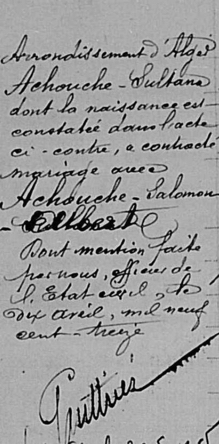 Arrondissement d'Alger
Achouche - Sultana
dont la naissance est
constatée dans l'acte
ci-contre, a contracté
mariage avec
Achouche - Salomon
- Albert
Dont mention faite
par nous, officier de
l'Etat civil, le
dix avril, mil neuf
cent-treize